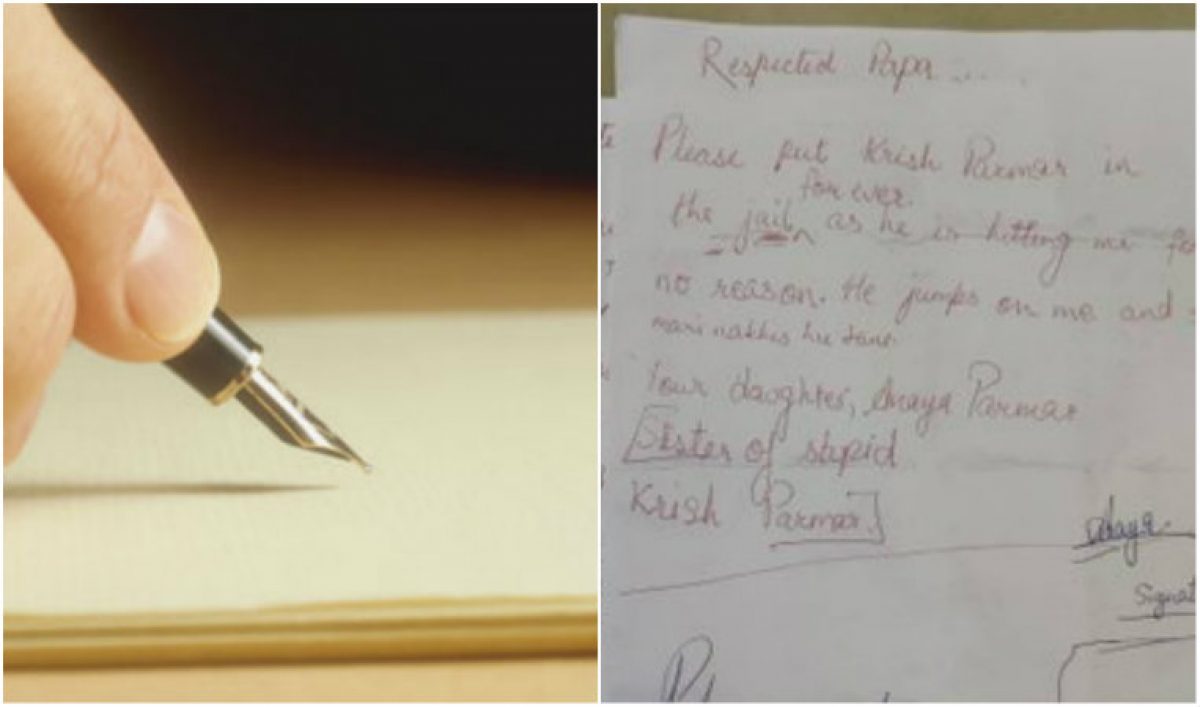 Respected Papa ....
Please put Krish Parmar in
for ever.
the jail, as he is hitting me fo
no reason. He jumps on me and
Your daughter, Anaya Parmar
[Sister of stupid
Krish Parmar.]
Anaya.
Signat